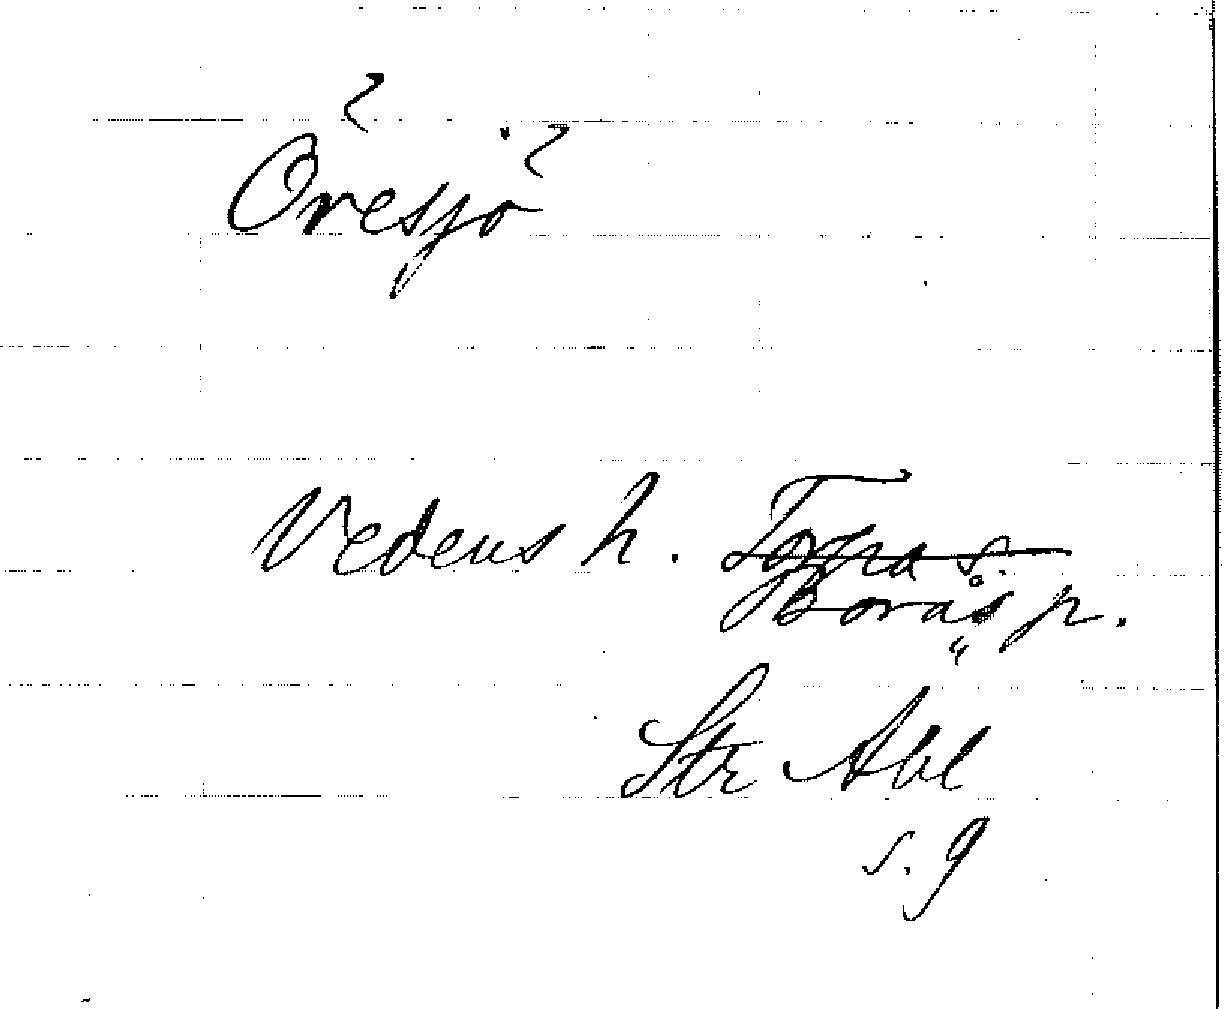 Öresjö
Vedens h. Torpa s.
Borås p.
Str Abl
s. 9